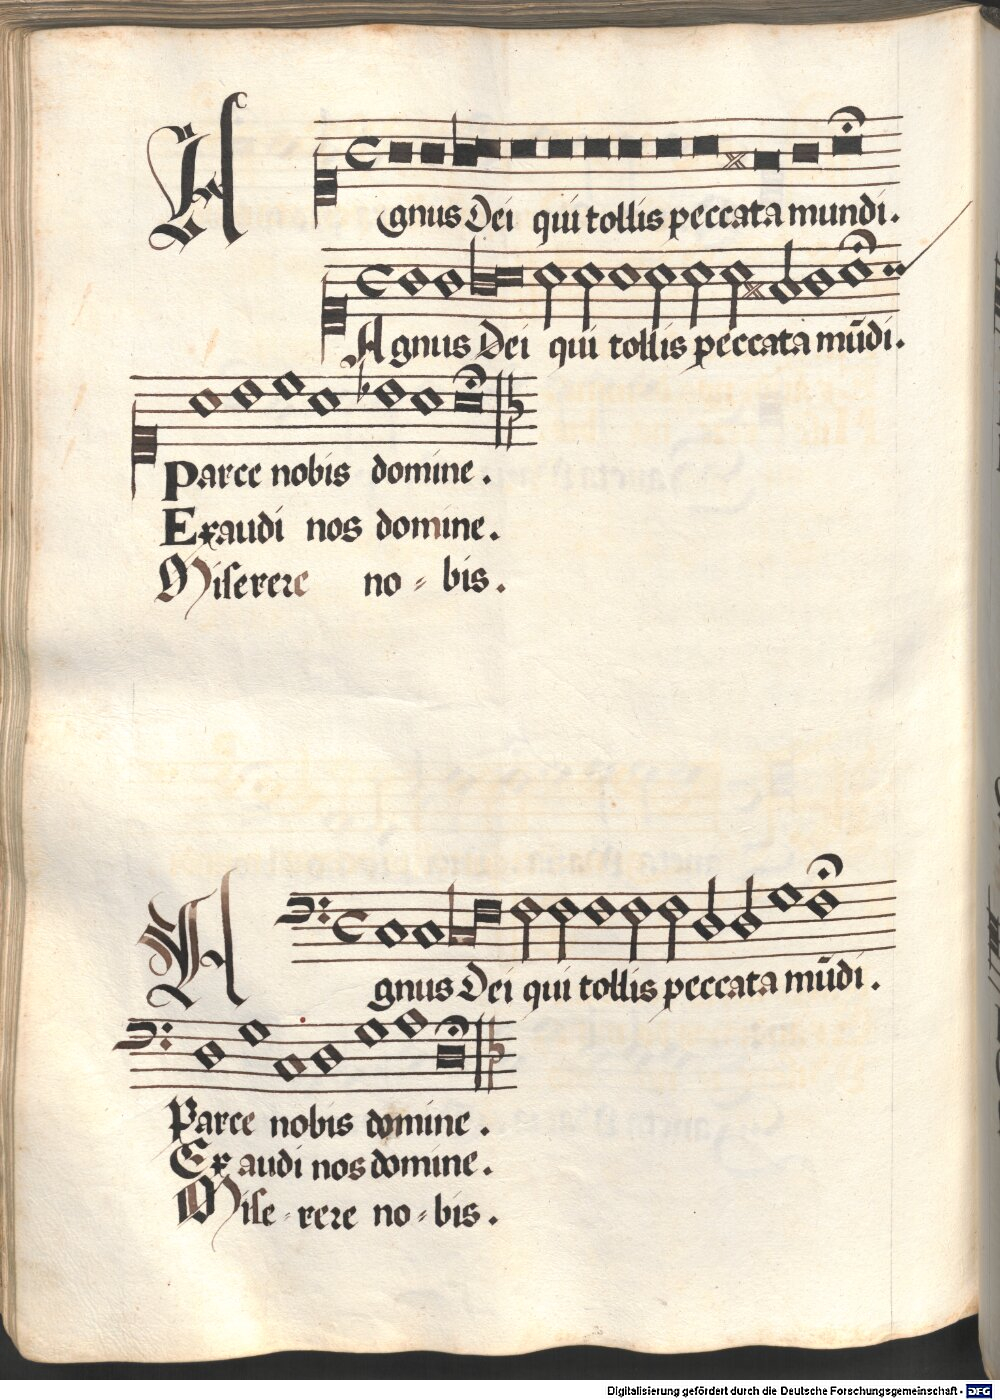 Agnus Dei qui tollis peccata mundi.
Agnus Dei qui tollis peccata mūdi.
Parce nobis domine.
Exaudi nos domine.
Miserere no - bis.
Agnus Dei qui tollis peccata mūdi.
Parce nobis domine.
Exaudi nos domine.
Mise - rere no - bis.
Digitalisierung gefördert durch die Deutsche Forschungsgemeinschaft - DFG